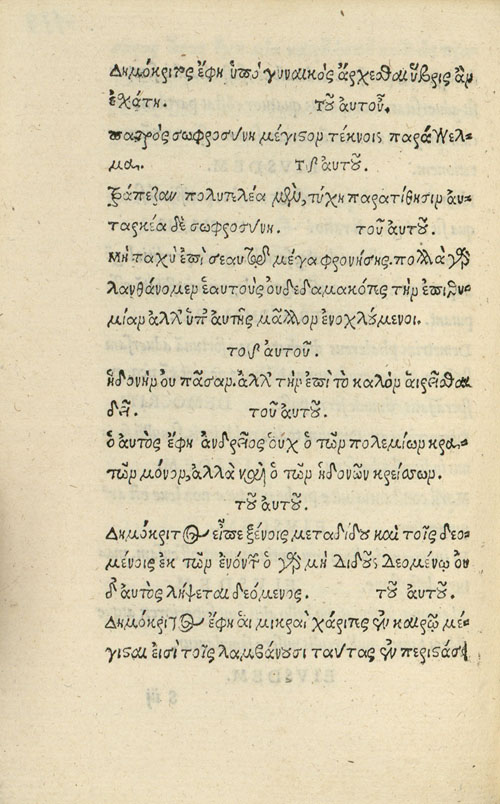 Δημόκριτος ἔφη ὑπὸ γυναικὸς ἄρχεσθαι ὕβρις ἂν
ἐχάτη. τοῦ αὐτοῦ.
πατρὸς σωφροσύνη μέγιστον τέκνοις παράγγελ-
μα. τοῦ αὐτοῦ.
Τράπεζαν πολυτελέα μὲν, τύχη παρατίθησιν αὐ-
ταρκέα δὲ σωφροσύνη. τοῦ αὐτοῦ.
Μὴ παχὺ ἐπὶ σεαυτῷ μέγα φρονήσης. πολλὰ γὰρ
λανθάνομεν ἑαυτοὺς οὐδεδαμακότες τὴν ἐπιθυ-
μίαν ἀλλ' ὑπ' αὐτῆς μᾶλλον ἐνοχλούμενοι.
τοῦ αὐτοῦ.
ἡδονὴν οὐ πᾶσαν. ἀλλ' τὴν ἐπὶ τὸ καλὸν αἱρεῖσθαι
δεῖ. τοῦ αὐτοῦ.
ὁ αὐτὸς ἔφη ἀνδρεῖος οὐχ ὁ τῶν πολεμίων κρα-
τῶν μόνον, ἀλλὰ καὶ ὁ τῶν ἡδονῶν κρείσσων.
τοῦ αὐτοῦ.
Δημόκριτος εἶπε ξένοις μεταδίδου καὶ τοῖς δεο-
μένοις ἐκ τῶν ἐνόντων ὁ γὰρ μὴ διδοὺς δεομένῳ οὐ
δ' αὐτὸς λήψεται δεόμενος. τοῦ αὐτοῦ.
Δημόκριτος ἔφη αἱ μικραὶ χάριτες ἐν καιρῷ μέ-
γισται εἰσὶ τοῖς λαμβάνουσι ταύτας ἐν περιστάσει